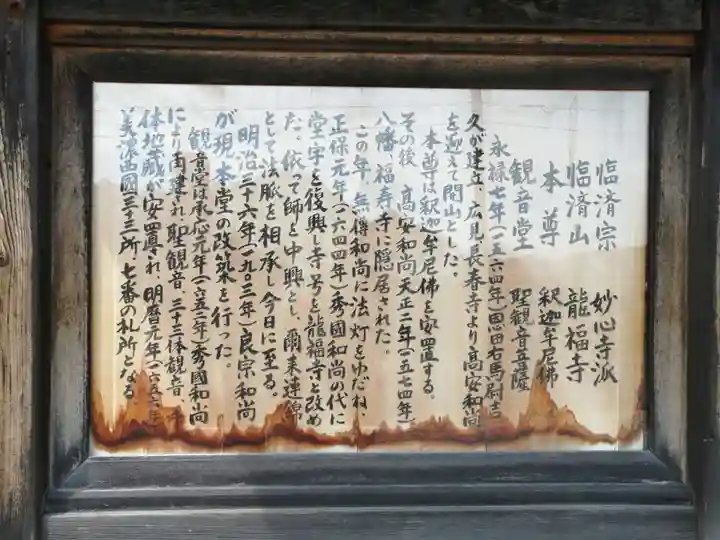 臨済宗 妙心寺派
臨済山 龍福寺
本尊 釈迦牟尼佛
観音堂 聖観音菩薩
永禄七年(一五六四年)恩田右馬尉吉
久が建立、広見長春寺より高安和尚
を迎えて開山とした。
本尊は釈迦牟尼佛を安置する。
その後、高安和尚天正二年(一五七四年)
八幡、福寿寺に隠居された。
この年、無得和尚に法灯をゆだね、
正保元年(一六四四年)秀國和尚の代に
堂宇を復興し寺号を龍福寺と改め
た。依って師を中興とし、爾来連綿
として法脈を相承し今日に至る。
明治三十六年(一九〇三年)良宗和尚
が現本堂の改築を行った。
観音堂は承応元年(一六五二年)秀國和尚
により再建され聖観音、三十三体観音、千
体地蔵が安置され、明暦元年(一六五六年)
美濃西国三十三所、七番の札所となる。